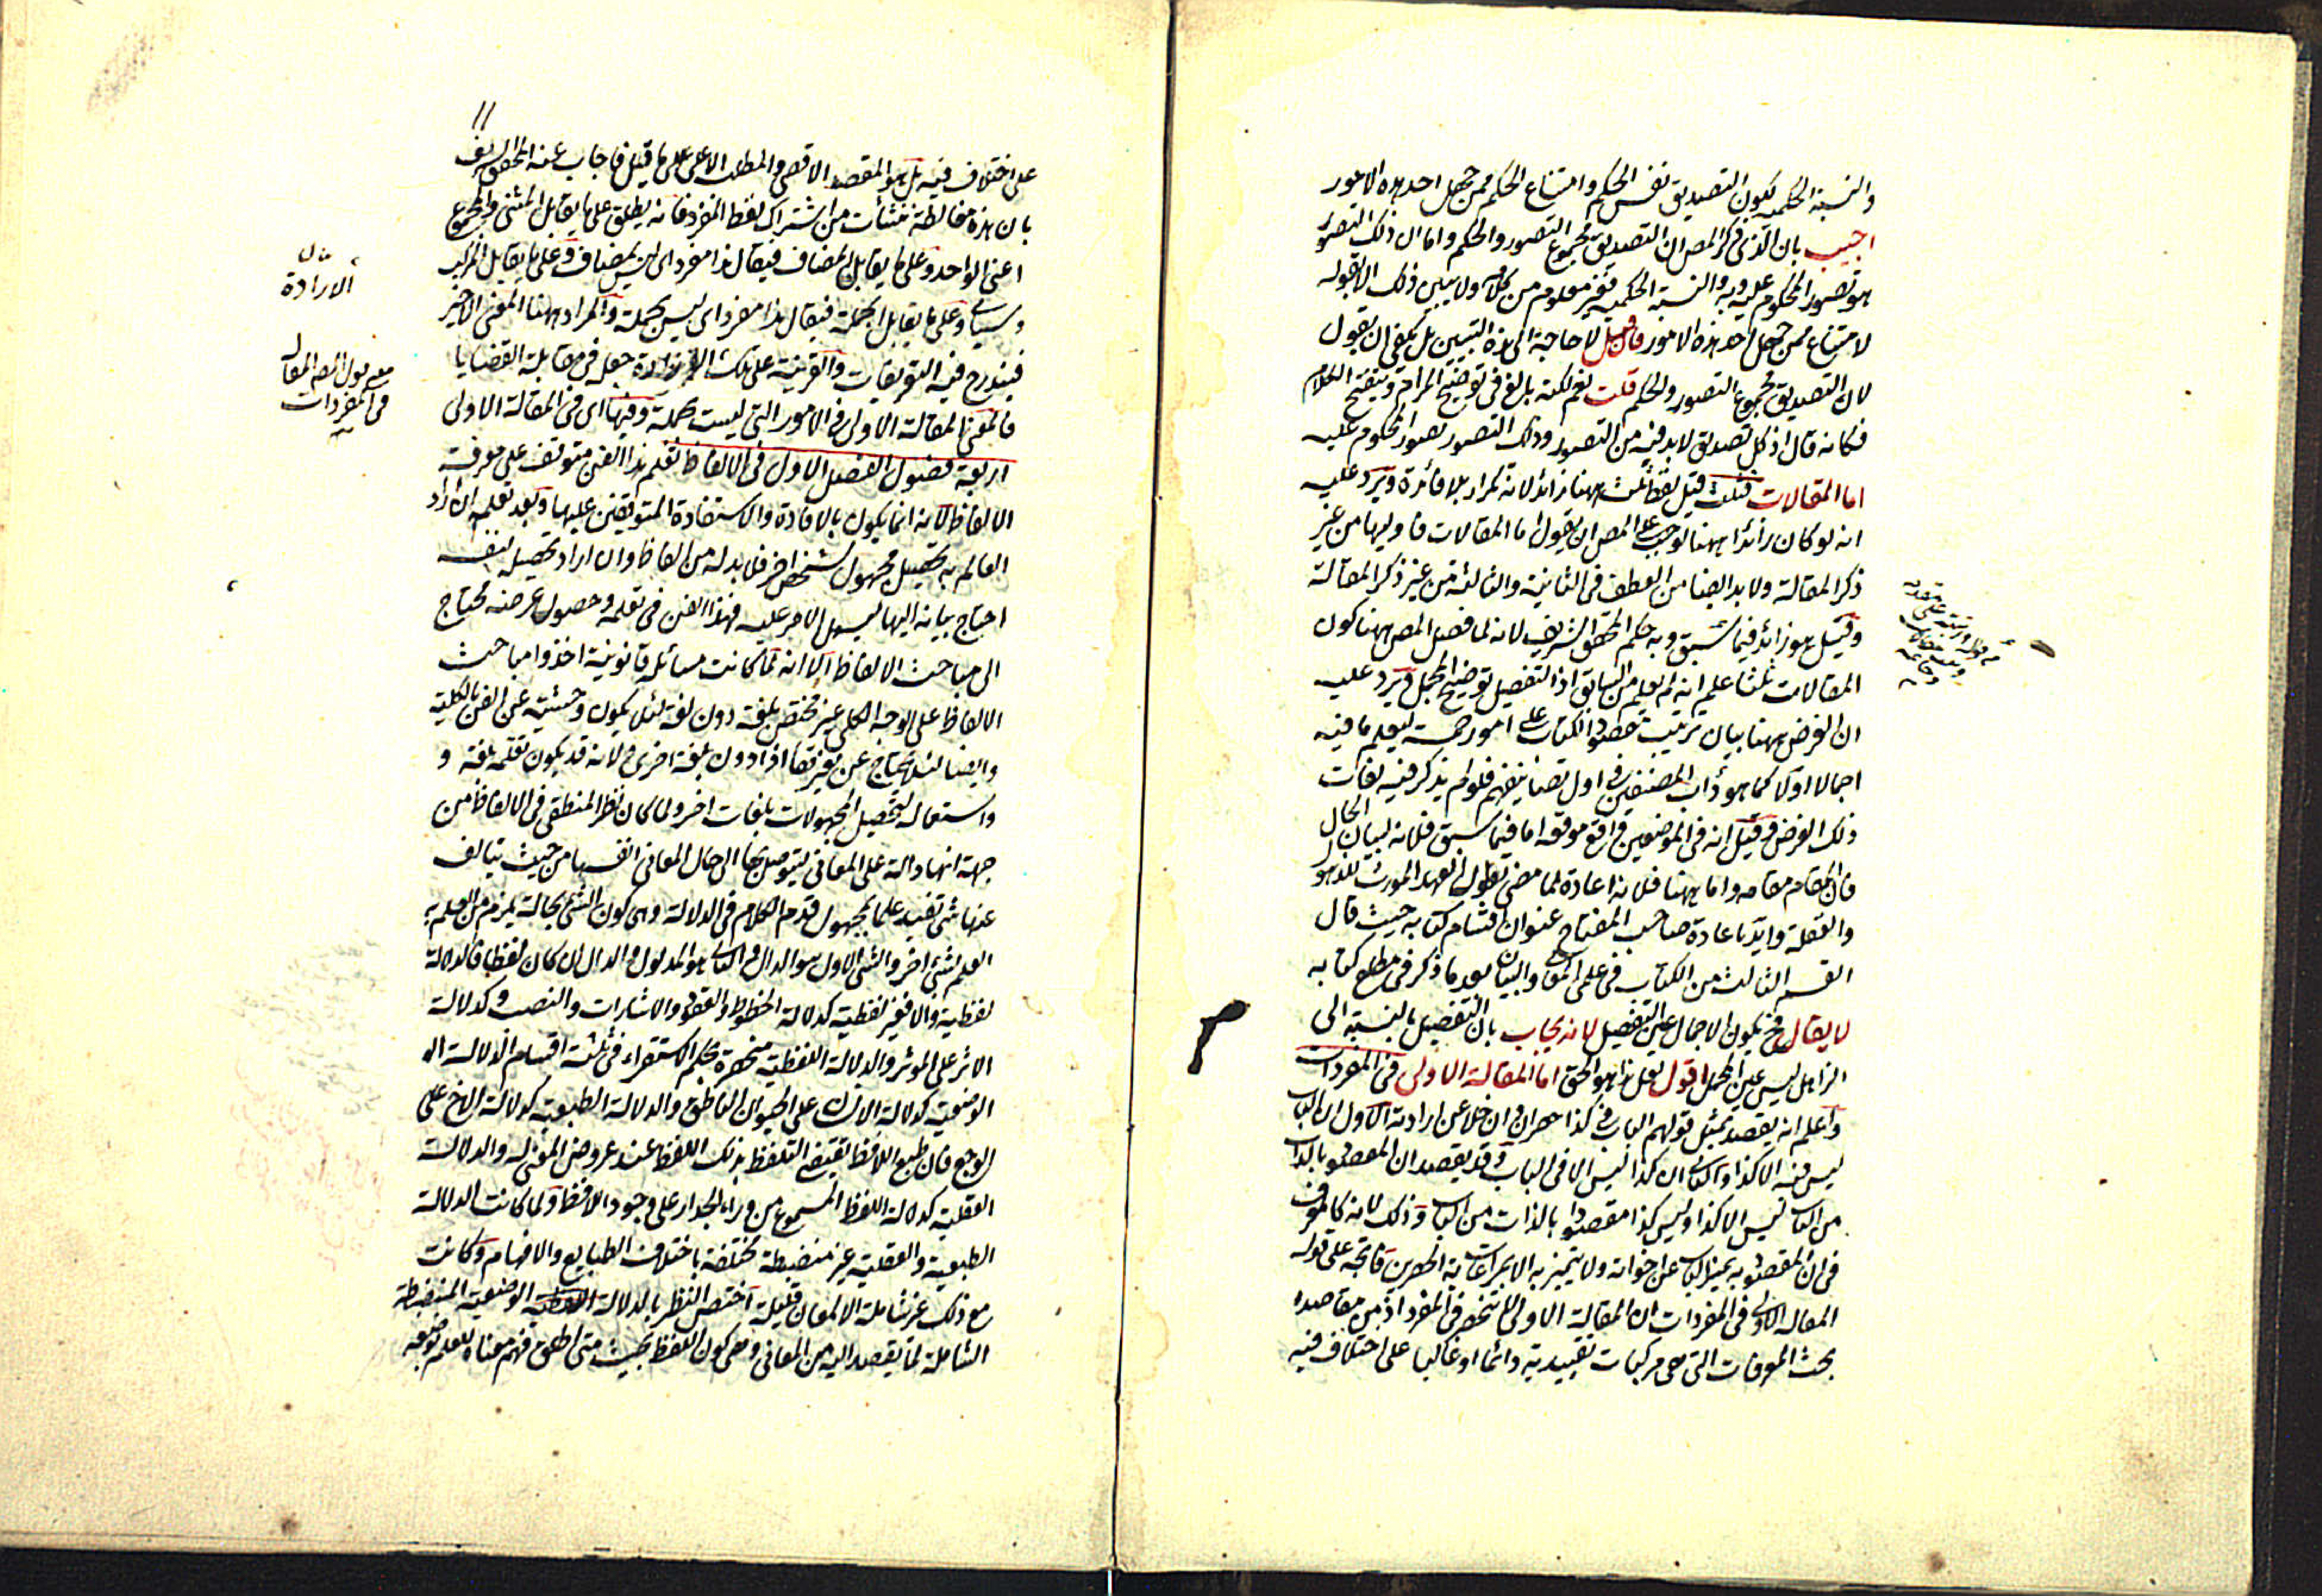 والنسبة الحكمية يكون التصديق نفس الحكم وامتناع الحكم ممن جهل احد هذه الامور
اجيب بان الذى ذكر المص ان التصديق مجموع التصور والحكم واما ان ذلك التصور
هو تصور المحكوم عليه وبه والنسبة الحكمية فغير معلوم من كلامه ولا يتبين ذلك الا بقوله
لامتناع ممن جهل احد هذه الامور فان قيل لا حاجة الى هذه التبيين بل يكفى ان يقول
لان التصديق مجموع التصور والحكم قلت نعم لكنه بالغ فى توضيح المرام وتنقيح الكلام
فكانه قال اذ كل تصديق لا بد فيه من التصور وذلك التصور تصور المحكوم عليه
اما المقالات فثلث قيل لفظ ثلث ههنا زائد لانه تكرار بلا فائدة ويرد عليه
انه لو كان زائدا ههنا لوجب على المص ان يقول اما المقالات فاوليها من غير
ذكر المقالة ولا بد ايضا من العطف فى الثانية والثالثة من غير ذكر المقالة
وقيل هو زائد فيما سبق وبه حكم المحقق الشريف لانه لما فصل المص ههنا كون
المقالات ثلثا علم انه لم يعلم من السابق اذ التفصيل توضيح المجمل ويرد عليه
ان الغرض ههنا بيان ترتيب الكتاب على امور خمسة ليعلم ما فيه
اجمالا اولا كما هو دأب المصنفين فى اول تصانيفهم فلو لم يذكر فيه لفات
ذلك الغرض وقيل انه فى الموضعين واقع موقعه اما فيما سبق فلانه لبيان الحال
فان المقام مقامه واما ههنا فلانه اعادة لما مضى لطول العهد المورث للذهول
والغفلة وايد باعادة صاحب المفتاح عنوان اقسام كتابه حيث قال
القسم الثالث من الكتاب فى علمى المعانى والبيان بعد ما ذكر فى مطلع كتابه
لا يقال فح يكون الاجمال عين التفصيل لانه يجاب بان التفصيل بالنسبة الى
الذاهل ليس عين المجمل اقول لعل هذا هو الحق اما المقالة الاولى فى المفردات
واعلم انه يقصد بمثل قولهم الباب فى كذا حصران وان خلا عن ارادته الاول ان الباب
ليس فيه الا كذا والثانى ان كذا ليس الا فى الباب وقد يقصد ان المقصود بالذات
من الباب ليس الا كذا وليس كذا مقصودا بالذات من الباب وذلك لانه كالمعرف
فى ان المقصود به تميز الباب عن اخواته ولا يتميز به الا بمراعاته الحصرين فاتجه على قوله
المقالة الاولى فى المفردات ان المقالة الاولى لا تنحصر فى المفرد اذ من مقاصده
بحث المعرفات التى هى مركبات تقييدية دائما او غالبا على اختلاف فيه
قوله ورتبته على مقدمة
وثلث مقالات
وخاتمة
١١
على اختلاف فيه بل هو المقصد الاقصى والمطلب الاعلى على ما قيل فاجاب عنه المحقق الشريف
بان هذه مغالطة نشأت من اشتراك لفظ المفرد فانه يطلق على ما يقابل المثنى والمجموع
اعنى الواحد وعلى ما يقابل المضاف فيقال هذا مفرد اى ليس بمضاف وعلى ما يقابل المركب
وسيأتى وعلى ما يقابل الجملة فيقال هذا مفرد اى ليس بجملة والمراد ههنا المعنى الاخير
فيندرج فيه التعريفات والقرينة على تلك الارادة جعله فى مقابلة القضايا
فالمعنى المقالة الاولى فى الامور التى ليست بجملة وفيها اى فى المقالة الاولى
اربعة فصول الفصل الاول فى الالفاظ تعلم هذا الفن متوقف على معرفة
الالفاظ لانه انما يكون بالافادة والاستفادة المتوقفين عليها وبعد تعلمه ان اراد
العالم به تحصيل مجهول لشخص اخر فلا بد له من الفاظ وان اراد تحصيله لنفسه
احتاج بيانه اليها ليسهل الامر عليه فهذا الفن فى تعلمه وحصول غرضه محتاج
الى مباحث الالفاظ الا انه لما كانت مسائله قانونية اخذوا مباحث
الالفاظ على الوجه الكلى غير مختص بلغة دون لغة لئلا يكون وحشية عن الفن بالكلية
وايضا لئلا يحتاج عن تغيرها اذا دون بلغة اخرى ولانه قد يكون تعلمه بلغة و
واستعماله لتحصيل المجهولات بلغات اخر ولما كان نظر المنطقى فى الالفاظ من
جهة انها دالة على المعانى ليتوصل بها الى حال المعانى انفسها من حيث يتالف
عنها شئ تفيد علما بمجهول قدم الكلام فى الدلالة وهى كون الشئ بحالة يلزم من العلم به
العلم بشئ اخر والشئ الاول هو الدال والثانى هو المدلول والدال ان كان لفظا فالدلالة
لفظية والا فغير لفظية كدلالة الخطوط والعقود والاشارات والنصب وكدلالة
الاثر على المؤثر والدلالة اللفظية منحصرة بحكم الاستقراء فى ثلثة اقسام الدلالة الد
الوضعية كدلالة الانسان على الحيوان الناطق والدلالة الطبيعية كدلالة اخ على
الوجع فان طبع اللافظ يقتضى التلفظ بذلك اللفظ عند عروض المعنى له والدلالة
العقلية كدلالة اللفظ المسموع من وراء الجدار على وجود اللافظ ولما كانت الدلالة
الطبيعية والعقلية غير منضبطة مختلفة باختلاف الطبايع والافهام وكانت
مع ذلك غير شاملة الا لمعان قليلة اختص النظر بالدلالة اللفظية الوضعية المنضبطة
الشاملة لما يقصد اليه من المعانى وهى كون اللفظ بحيث متى اطلق فهم معناه للعلم بوضعه
الارادة
معنى قول المص المقالة
فى المفردات